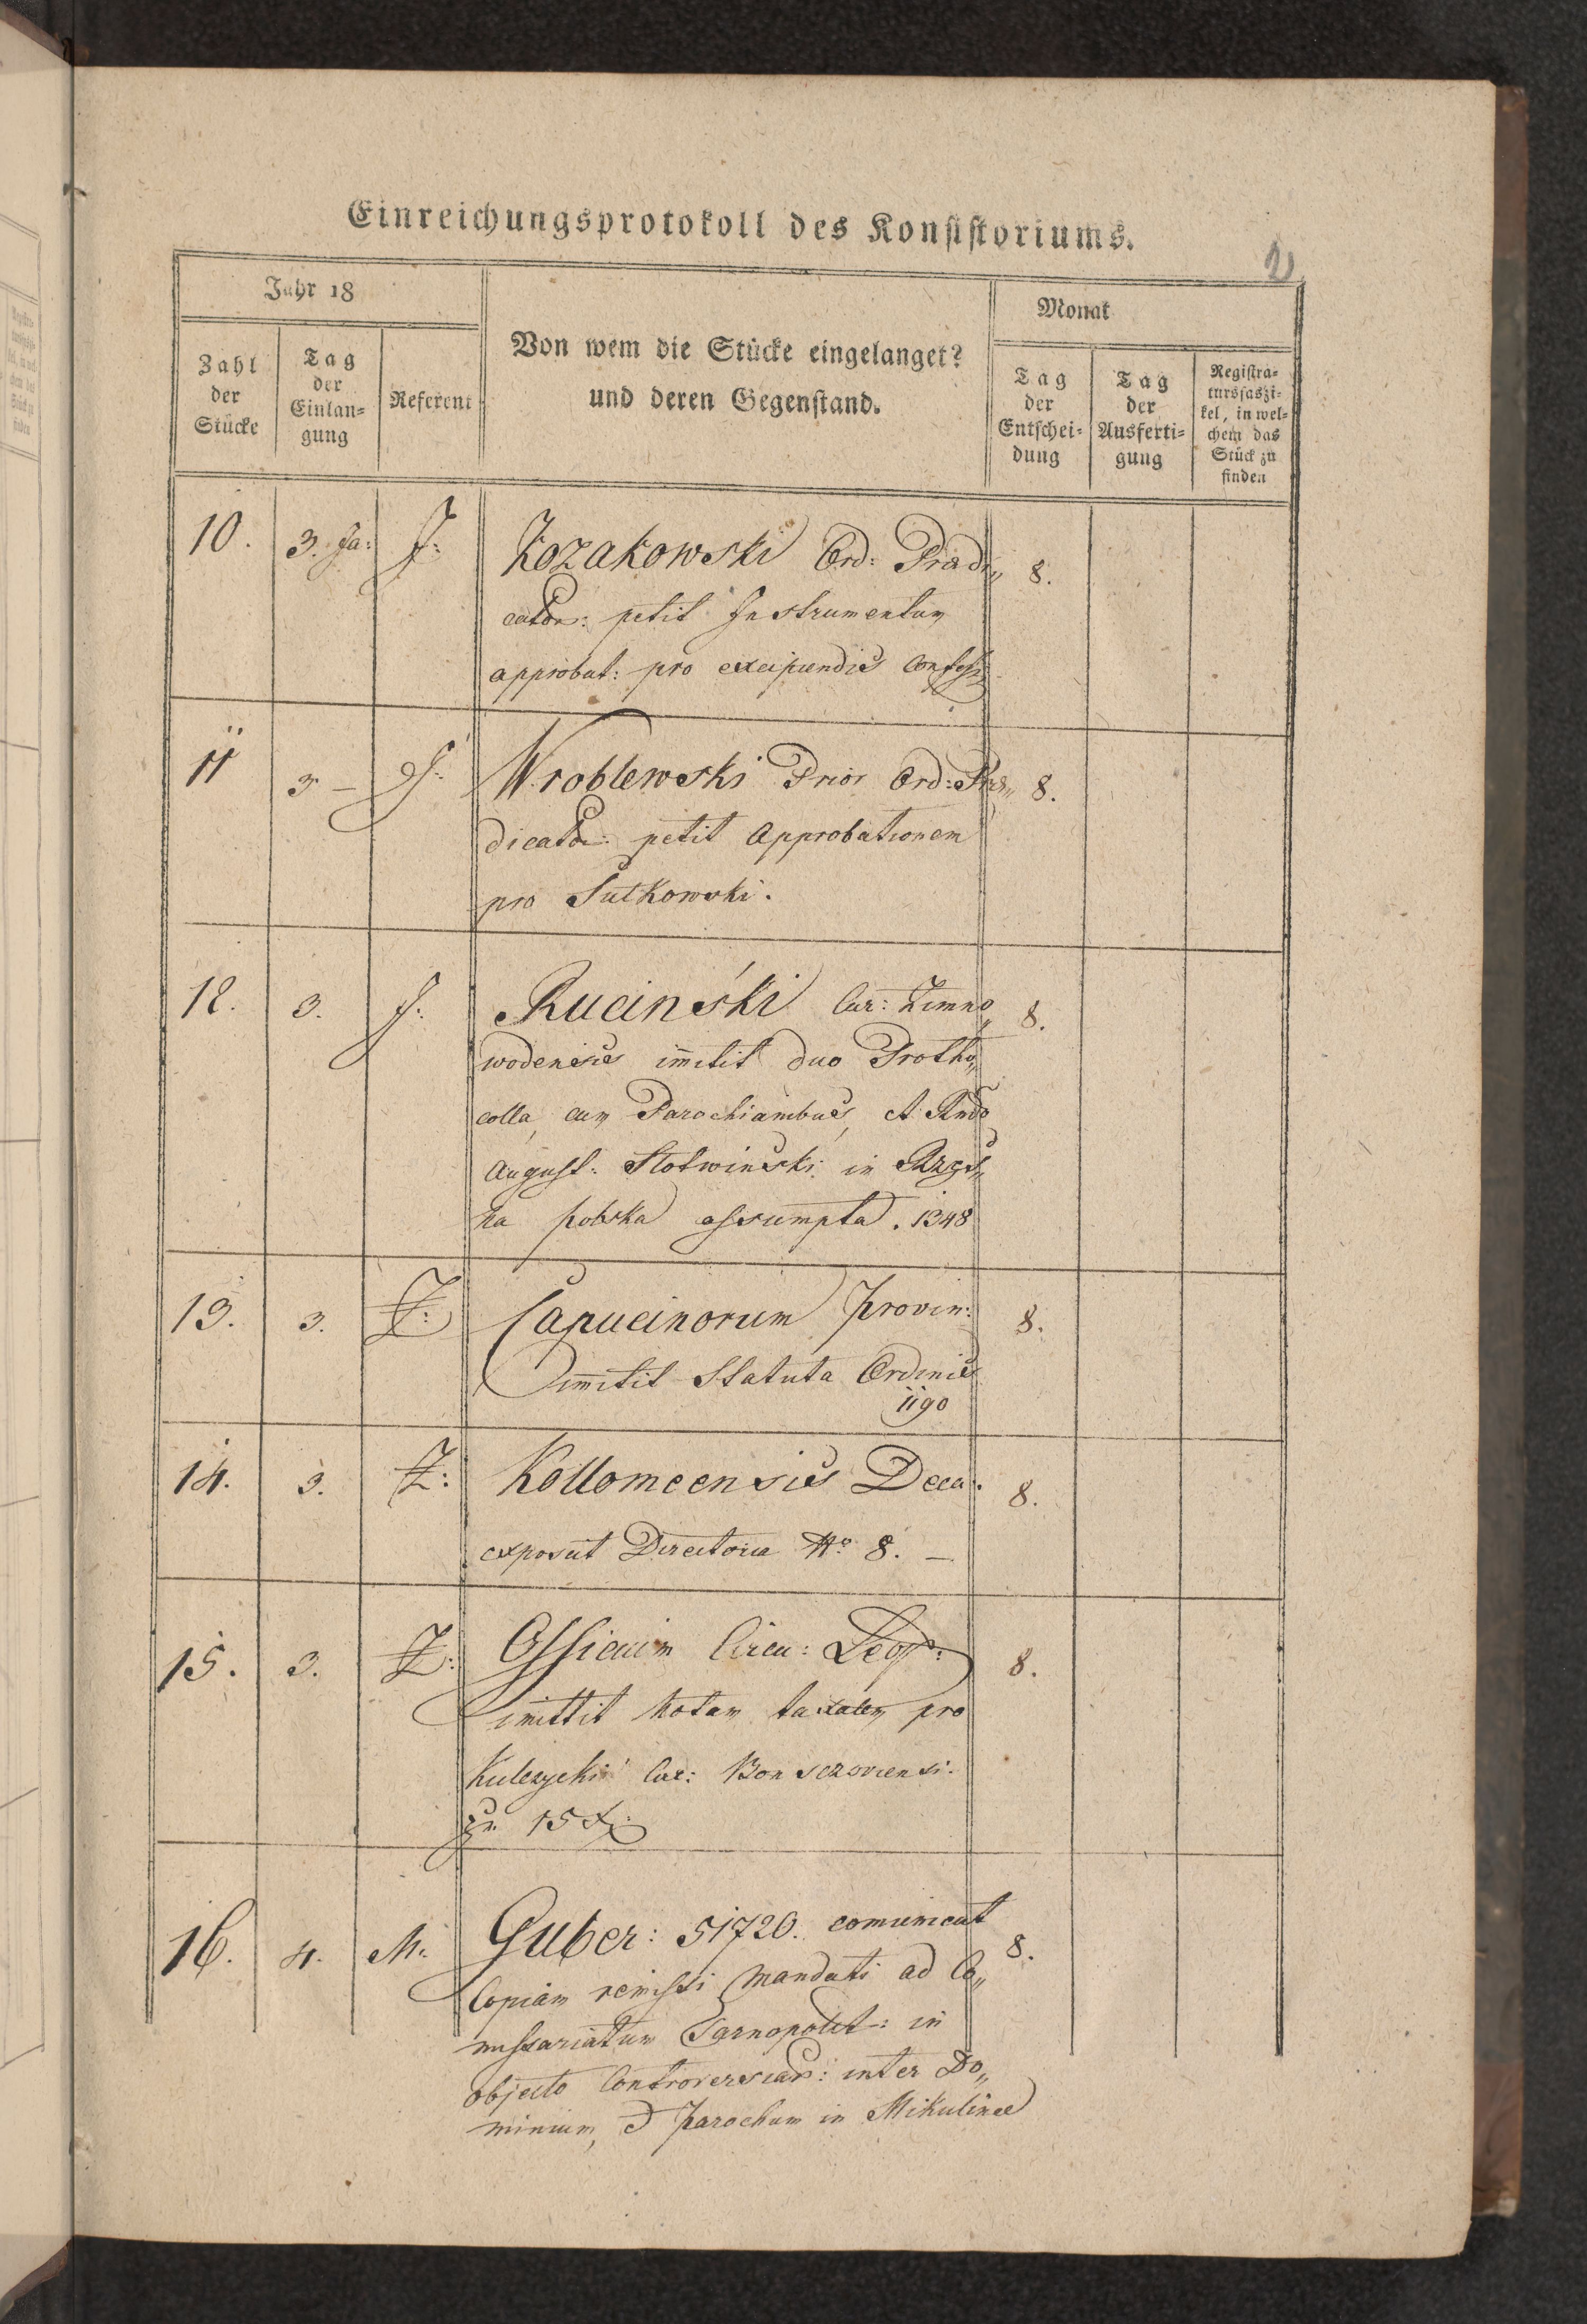 Einreichungsprotokoll des Konsistoriums.
2
Jahr 18
Monat
Zahl der Stücke
Tag der Einlan= gung
Referent
Von wem die Stücke eingelanget?
und deren Gegenstand.
Tag der Entschei= dung
Tag der Ausferti= gung
Registra= tursfaszi= kel, in wel= chem das Stück zu finden
10. 3. Ja: J: Kozakowski Ord: Prædi„ 8.
cator: petit Instrumentum
approbat: pro excipiendis Confess:
11 3 – J: Wroblewski Prior Ord: Præ„ 8.
dicator: petit Approbationem
pro Sutkowski.
12. 3. J: Ruciński Cur: Zimno„ 8.
wodensis im̄itit duo Protho„
colla, cum Parochianibus, A Rndo
August: Stotwinski in Rzęs„
na polska assumpta. 1348
13. 3. Z: Capucinorum Provin: 8.
im̄itit Statuta Ordinis
1190
14. 3. Z: Kollomeensis Deca: 8.
exposcit Directoria No 8. –
15. 3. Z: Officium Circu: Leop: 8.
im̄ittit Notam taxalem pro
Kulczycki Cur: Bonsczoviensi.
zu 15 f
16. 4. M. Guber: 51720. com̄unicat 8.
Copiam remissi Mandati ad Co„
missariatum Tarnopolit: in
objecto Controversiar: inter Do„
minium, et Parochum in Mikulince